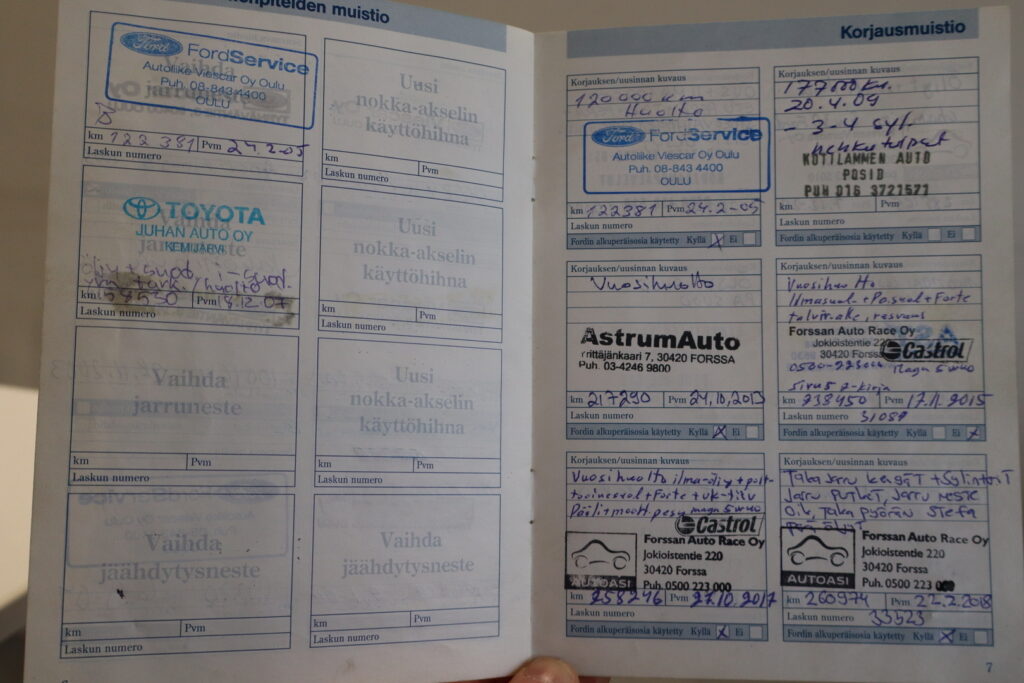 muistio
Ford FordService
Autoliike Viescar Oy Oulu
Puh. 08-843 4400
OULU
km 122 381 Pvm 24.2-05
Laskun numero
Uusi
nokka-akselin
käyttöhihna
km Pvm
Laskun numero
TOYOTA
JUHAN AUTO OY
KEMIJÄRVI
km Pvm 8.12.07
Laskun numero
Uusi
nokka-akselin
käyttöhihna
km Pvm
Laskun numero
Vaihda
jarruneste
km Pvm
Laskun numero
Uusi
nokka-akselin
käyttöhihna
km Pvm
Laskun numero
Vaihda
jäähdytysneste
km Pvm
Laskun numero
Vaihda
jäähdytysneste
km Pvm
Laskun numero
Korjausmuistio
Korjauksen/uusinnan kuvaus
120 000 km
Huolto
Ford FordService
Autoliike Viescar Oy Oulu
Puh. 08-843 4400
OULU
km 122381 Pvm 24.2-05
Laskun numero
Fordin alkuperäisosia käytetty Kyllä X Ei
Korjauksen/uusinnan kuvaus
177000 km.
20.4.09
- 3-4 syl.
hehkutulpat
KOTILAMMEN AUTO
POSIO
PUH 016 3721571
km Pvm
Laskun numero
Fordin alkuperäisosia käytetty Kyllä Ei
Korjauksen/uusinnan kuvaus
Vuosihuolto
AstrumAuto
Yrittäjänkaari 7, 30420 FORSSA
Puh. 03-4246 9800
km 217290 Pvm 24.10.2013
Laskun numero
Fordin alkuperäisosia käytetty Kyllä X Ei
Korjauksen/uusinnan kuvaus
Vuosihuolto
Forssan Auto Race Oy
Jokioistentie
30420 Forssa
Castrol
km 238450 Pvm 17.11.2015
Laskun numero 31089
Fordin alkuperäisosia käytetty Kyllä Ei X
Korjauksen/uusinnan kuvaus
Vuosihuolto
Castrol
Forssan Auto Race Oy
Jokioistentie 220
30420 Forssa
AUTOASI Puh. 0500 223 000
km 258246 Pvm 27.10.2017
Laskun numero
Fordin alkuperäisosia käytetty Kyllä X Ei
Korjauksen/uusinnan kuvaus
Taka jarru kengät + Sylinterit
Jarru putket, Jarru neste
Forssan Auto Race Oy
Jokioistentie 220
30420 Forssa
AUTOASI Puh. 0500 223
km 260974 Pvm 22.2.2018
Laskun numero 33523
Fordin alkuperäisosia käytetty Kyllä X Ei
7